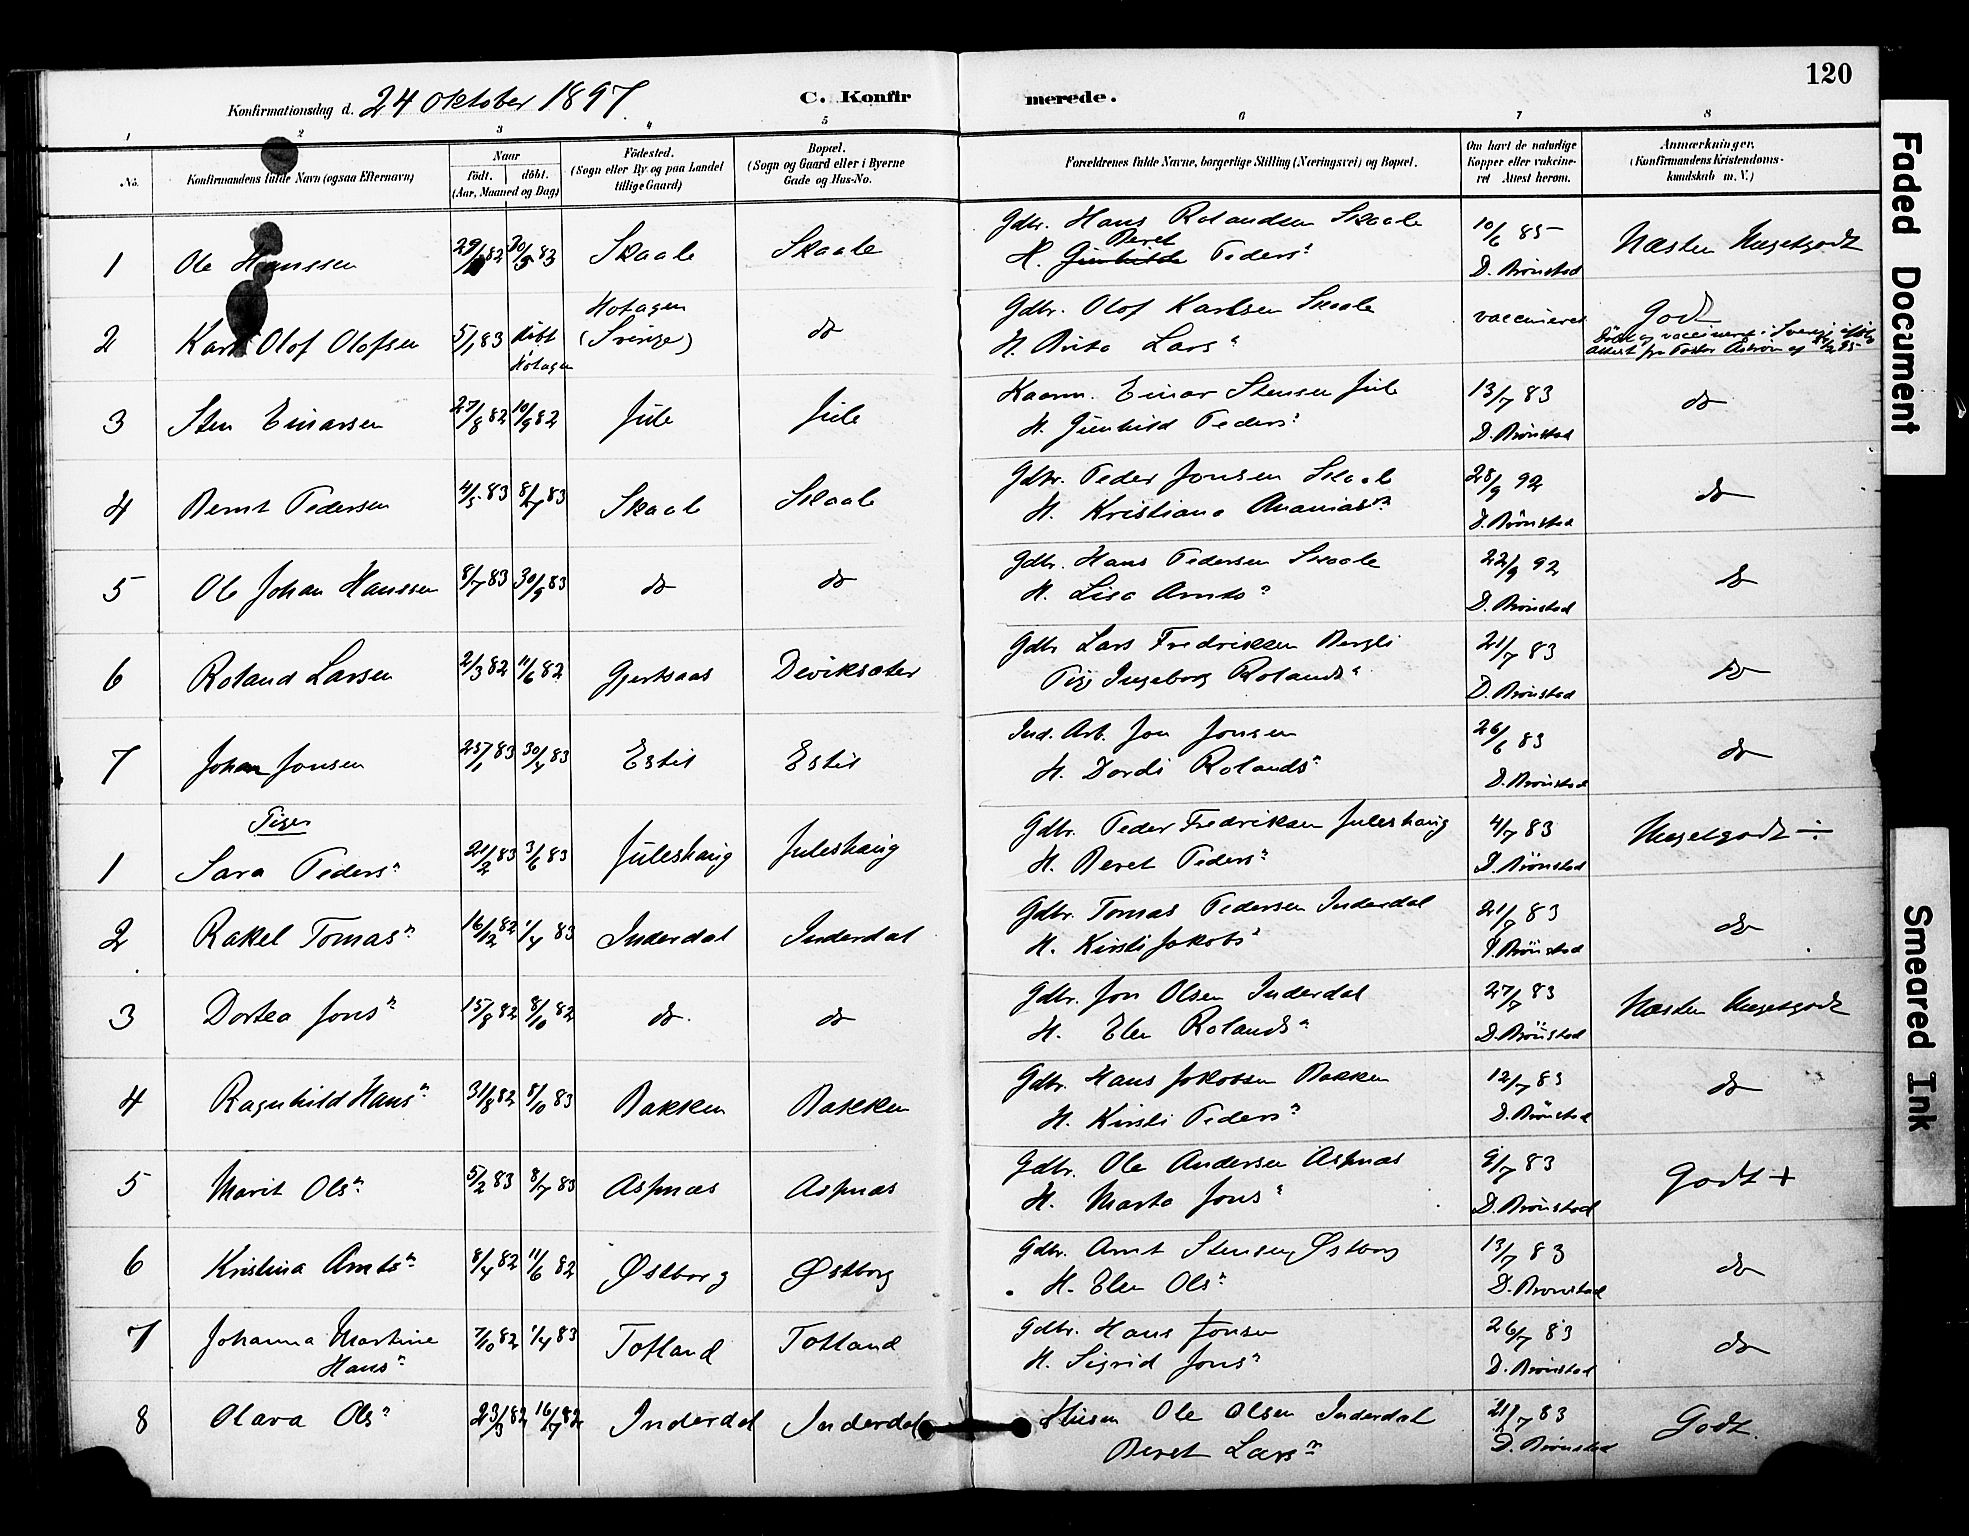 120
Konfirmationsdag d. 24 Oktober 1897
C. Konfirmerede.
1 2 3 4 5 6 7 8
No. Konfirmandens fulde Navn (ogsaa Efternavn) Naar født. døbt. (Aar, Maaned og Dag) Fødested. (Sogn eller By og paa Landet tillige Gaard) Bopæl. (Sogn og Gaard eller i Byerne Gade og Hus-No. Forældrenes fulde Navne, borgerlige Stilling (Næringsvei) og Bopæl. Om havt de naturlige Kopper eller vaccineret Attest herom. Anmærkninger. (Konfirmandens Kristendomskundskab m. V.)
1 Ole Hanssen 30/5 83 Skaale Skaale Gdbr. Hans Rolandsen Skaale 10/6 85 Næsten Megetgodt
H. Beret Peders" D. Brönstad
2 Karl Olof Olofsen 5/1 83 døbt Hotagen Hotagen (Sverige) do Gdbr. Olof Karlsen Skaale vaccineret Godt
H. Brita Lars" Døbt og vaccineret i Sverige
attest fra Pastor
3 Sten Einarsen 27/8 82 10/9 82 Jule Jule Kaarm. Einar Stensen Jule 13/7 83 do
H. Gunhild Peders" D. Brönstad
4 Bernt Pedersen 4/5 83 8/7 83 Skaale Skaale Gdbr. Peder Jonsen Skaale 28/9 92 do
H. Kristiana Ananias" D. Brönstad
5 Ole Johan Hanssen 8/7 83 30/9 83 do do Gdbr. Hans Pedersen Skaale 22/9 92 do
H. Lisa Arnts" D. Brönstad
6 Roland Larsen 2/3 82 11/6 82 Gjertsaas Deviksæter Gdbr Lars Fredriksen Bergli 21/7 83 do
Pige Ingeborg Rolands" D. Brönstad
7 Johan Jonsen 25/1 83 30/4 83 Estil Estil Ind. Arb. Jon Jonsen 26/6 83 do
H. Dordi Rolands" D. Brönstad
Piger
1 Sara Peders" 21/2 83 3/6 83 Juleshaug Juleshaug Gdbr. Peder Fredriksen Juleshaug 4/7 83 Megetgodt ÷
H. Beret Peders" D. Brönstad
2 Rakel Tomas" 16/12 82 1/4 83 Inderdal Inderdal Gdbr. Tomas Pedersen Inderdal 21/7 83 do
H. Kirsti Jakobs" D. Brönstad
3 Dortea Jons" 15/8 82 8/10 82 do. do Gdbr. Jon Olsen Inderdal 27/7 83 Næsten Megetgodt
H. Elen Rolands" D. Brönstad
4 Ragnhild Hans" 31/8 82 8/10 83 Bakken Bakken Gdbr. Hans Jakobsen Bakken 12/7 83 do
H. Kirsti Peders" D. Brönstad
5 Marit Ols" 5/2 83 8/7 83 Aspnæs Aspnæs Gdbr. Ole Andersen Aspnæs 9/7 83 Godt +
H. Marta Jons" D. Brönstad
6 Kristina Arnts" 8/4 82 11/6 82 Østborg Østborg Gdbr. Arnt Stensen Østborg 13/7 83 do
H. Elen Ols" D. Brönstad
7 Johanna Martine Hans" 7/10 82 1/4 83 Totland Totland Gdbr. Hans Jonsen 26/7 83 do
H. Sigrid Jons" D. Brönstad
8 Olava Ols" 23/3 82 16/7 82 Inderdal Inderdal Husm Ole Olsen Inderdal 21/7 83 Godt.
Beret Lars" D. Brönstad
Faded Document
Smeared Ink